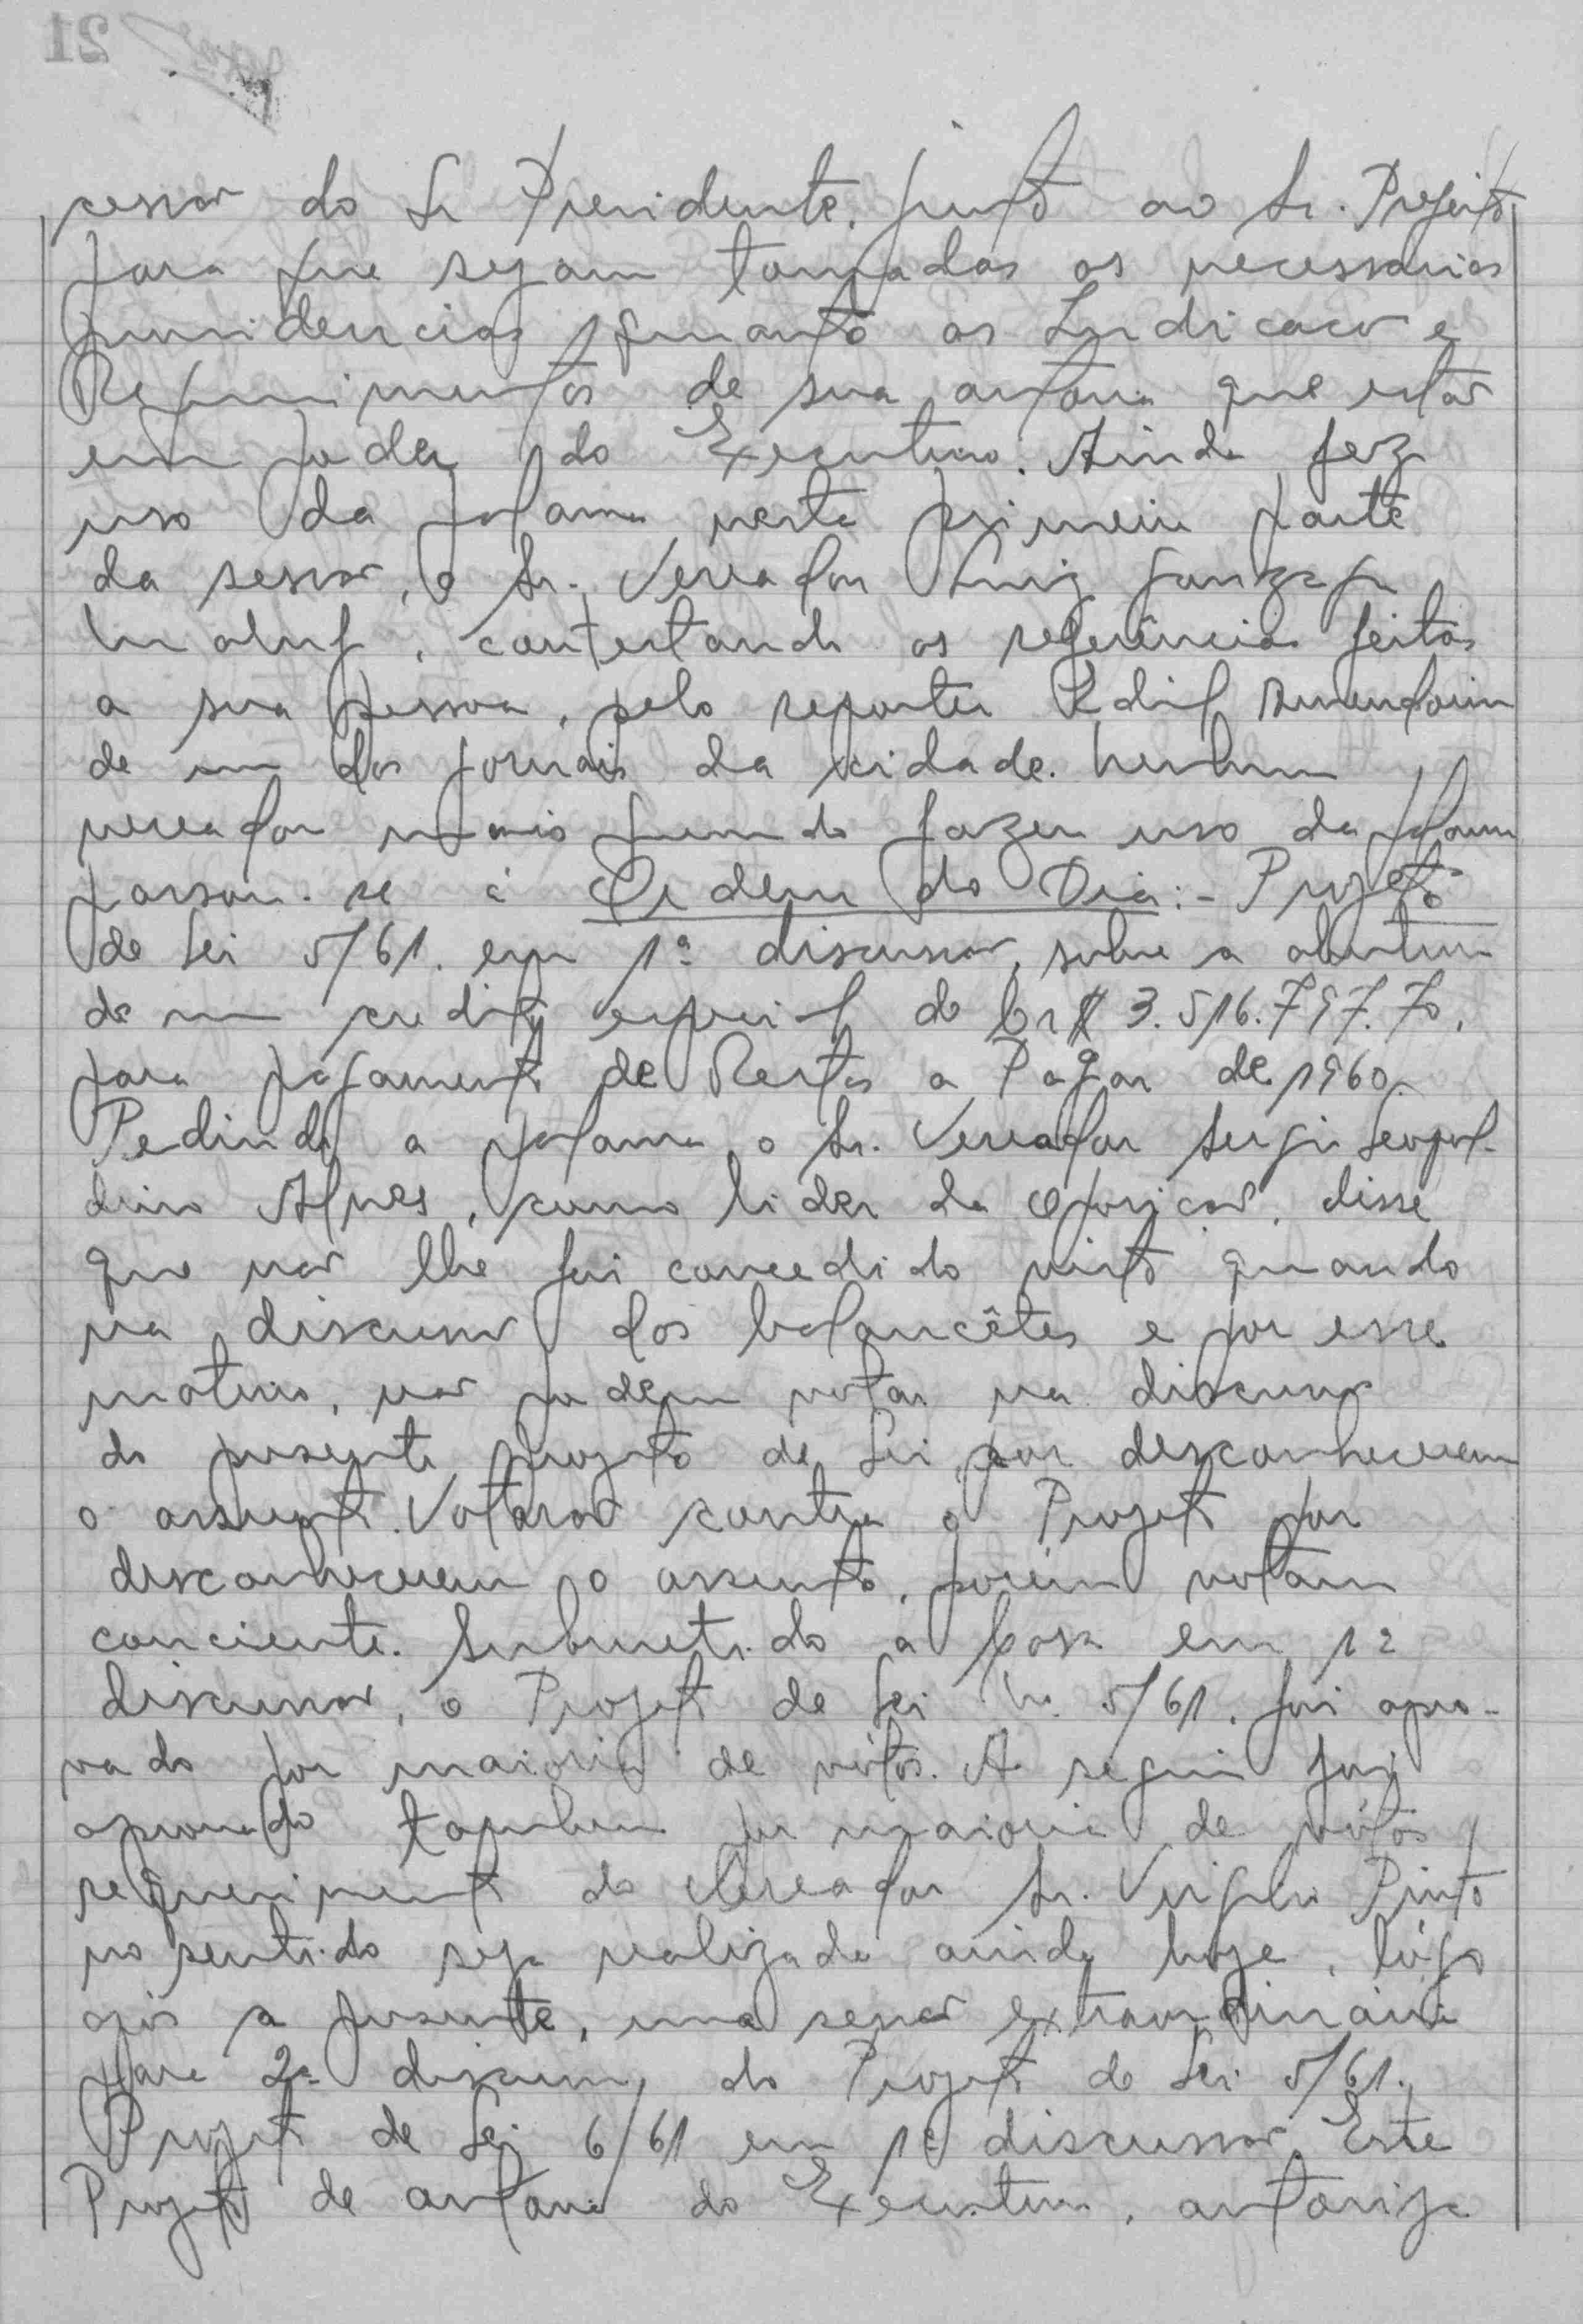 cessão do Sr Presidente, junto ao Sr. Prefeito
para que sejam tomadas as necessarias
providencias quanto as Indicação e
Requerimentos de sua autoria que estão
em poder do Executivo. Ainda fez
uso da palavra nesta primeira parte
da sessão, o Sr. Vereador Luiz Gonzaga
contestando as referências feitas
a sua pessoa, pelo reporter Amendoim
de um dos jornais da cidade. Nenhum
vereador mais querendo fazer uso da palavra
passou-se á Ordem do Dia:- Projeto
de Lei 5/61. em 1ª discussão, sobre a abertura
de um credito especial de Cr$ 3.516.797.70,
para pagamento de Restos a Pagar de 1960.
Pedindo a palavra o Sr. Vereador Sergio Leopol-
dino Alves, como lider da oposição, disse
que não lhe foi concedido visto quando
na discussão dos balancêtes e por esse
motivo, não podem votar na discussão
do presente projeto de Lei, por desconhecerem
o assunto. Votarão contra o Projeto por
desconhecerem o assunto, porém votam
conciente. Submetido a Casa em 1ª
discussão, o Projeto de Lei N. 5/61, foi apro-
vado por maioria de vótos. A seguir foi
aprovado tambem por maioria de vótos
requerimento do Vereador Sr. Virgilio Pinto
no sentido seja realizada ainda hoje, lógo
após a presente, uma sessão extraordinária
para 2ª discussão do Projeto de Lei 5/61.
Projeto de Lei 6/61 em 1ª discussão. Este
Projeto de autoria do Executivo, autoriza